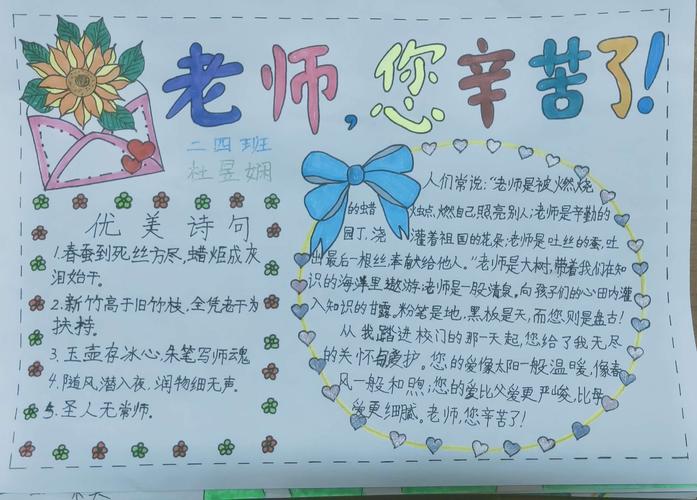 老师,您辛苦了!
二四班
杜昱娴
优美诗句
1.春蚕到死丝方尽,蜡炬成灰
泪始干。
2.新竹高于旧竹枝,全凭老干为
扶持。
3.玉壶存冰心,朱笔写师魂
4.随风潜入夜,润物细无声。
5.圣人无常师。
人们常说:“老师是被燃烧
的蜡烛点,燃自己照亮别人;老师是辛勤的
园丁,浇灌着祖国的花朵;老师是吐丝的蚕,吐
出最后一根丝奉献给他人。”老师是大树,带着我们在知
识的海洋里遨游;老师是一股清泉,向孩子们的心田内灌
入知识的甘露。粉笔是地,黑板是天,而您则是盘古!
从我踏进校门的那一天起,您给了我无尽
的关怀与爱护。您的爱像太阳一般温暖,像春
风一般和煦;您的爱比父爱更严峻,比母
爱更细腻。老师,您辛苦了!